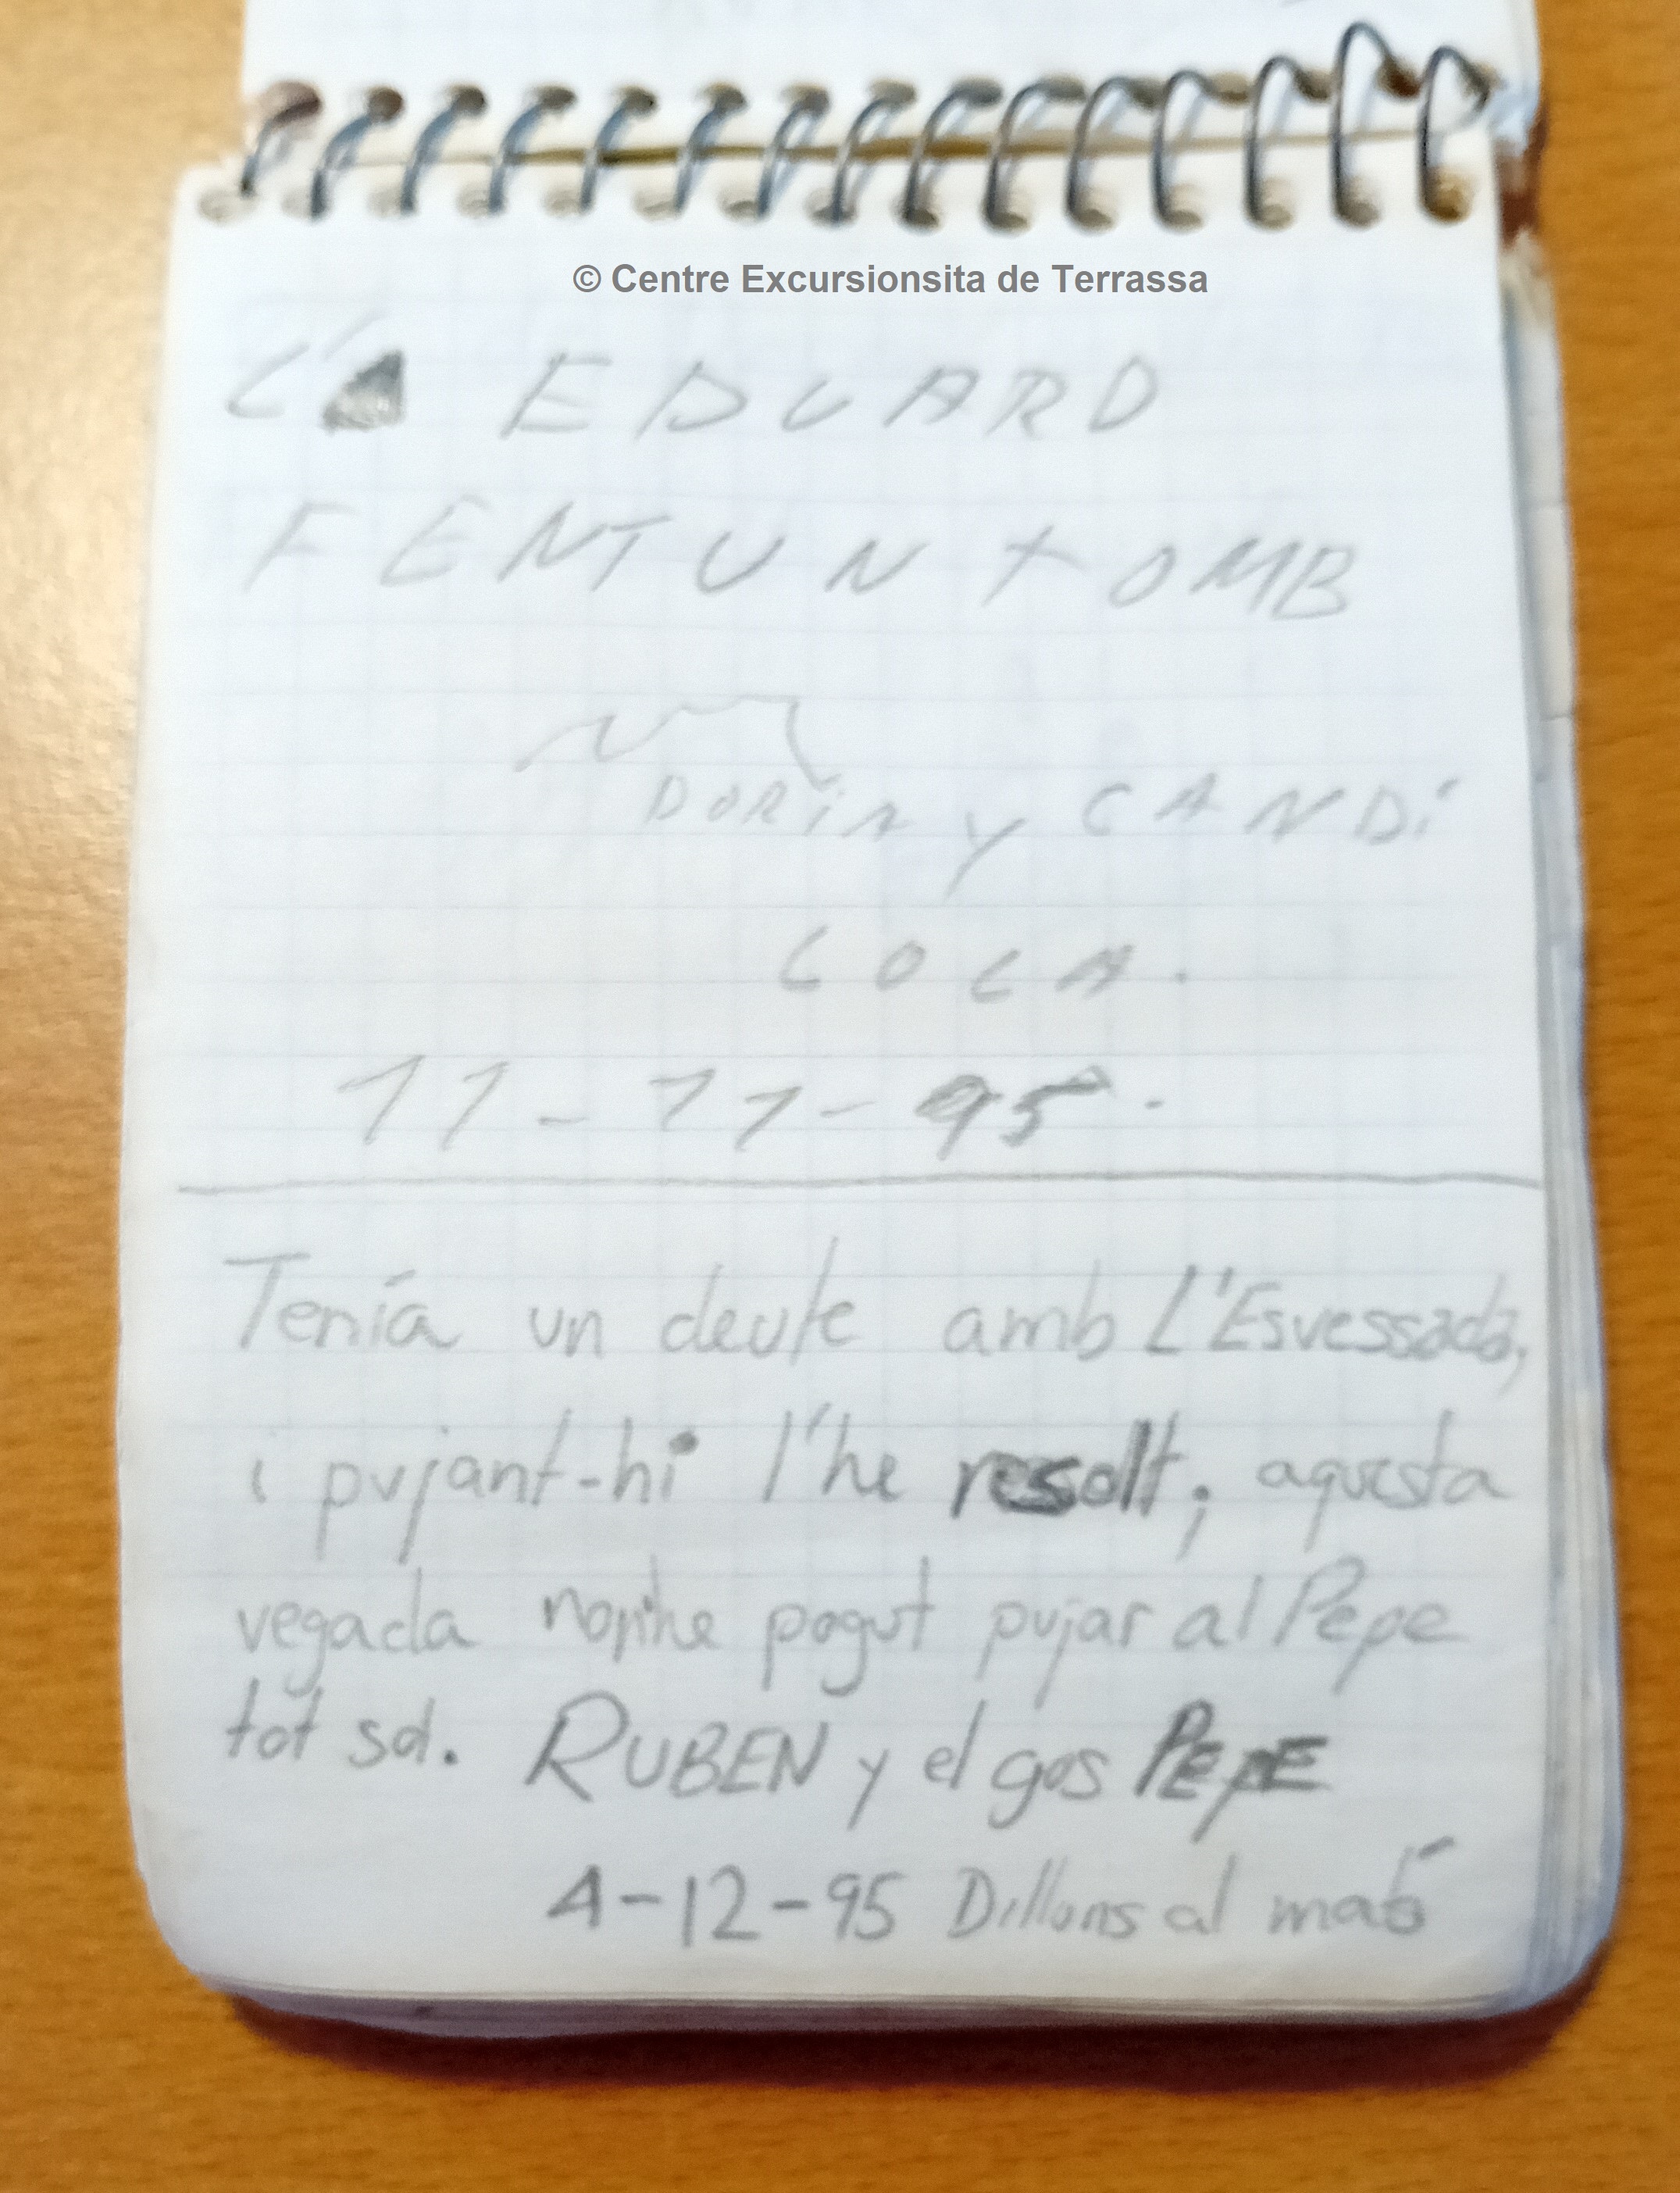 © Centre Excursionsita de Terrassa
L' EDUARD
FENT UN TOMB
DORIN y CANDI
COCA.
11-11-95.
Tenía un deute amb L'Esvessada,
i pujant-hi l'he resolt; aquesta
vegada pogut pujar al Pepe
tot sol. RUBEN y el gos PEPE
4-12-95 Dillons al matí